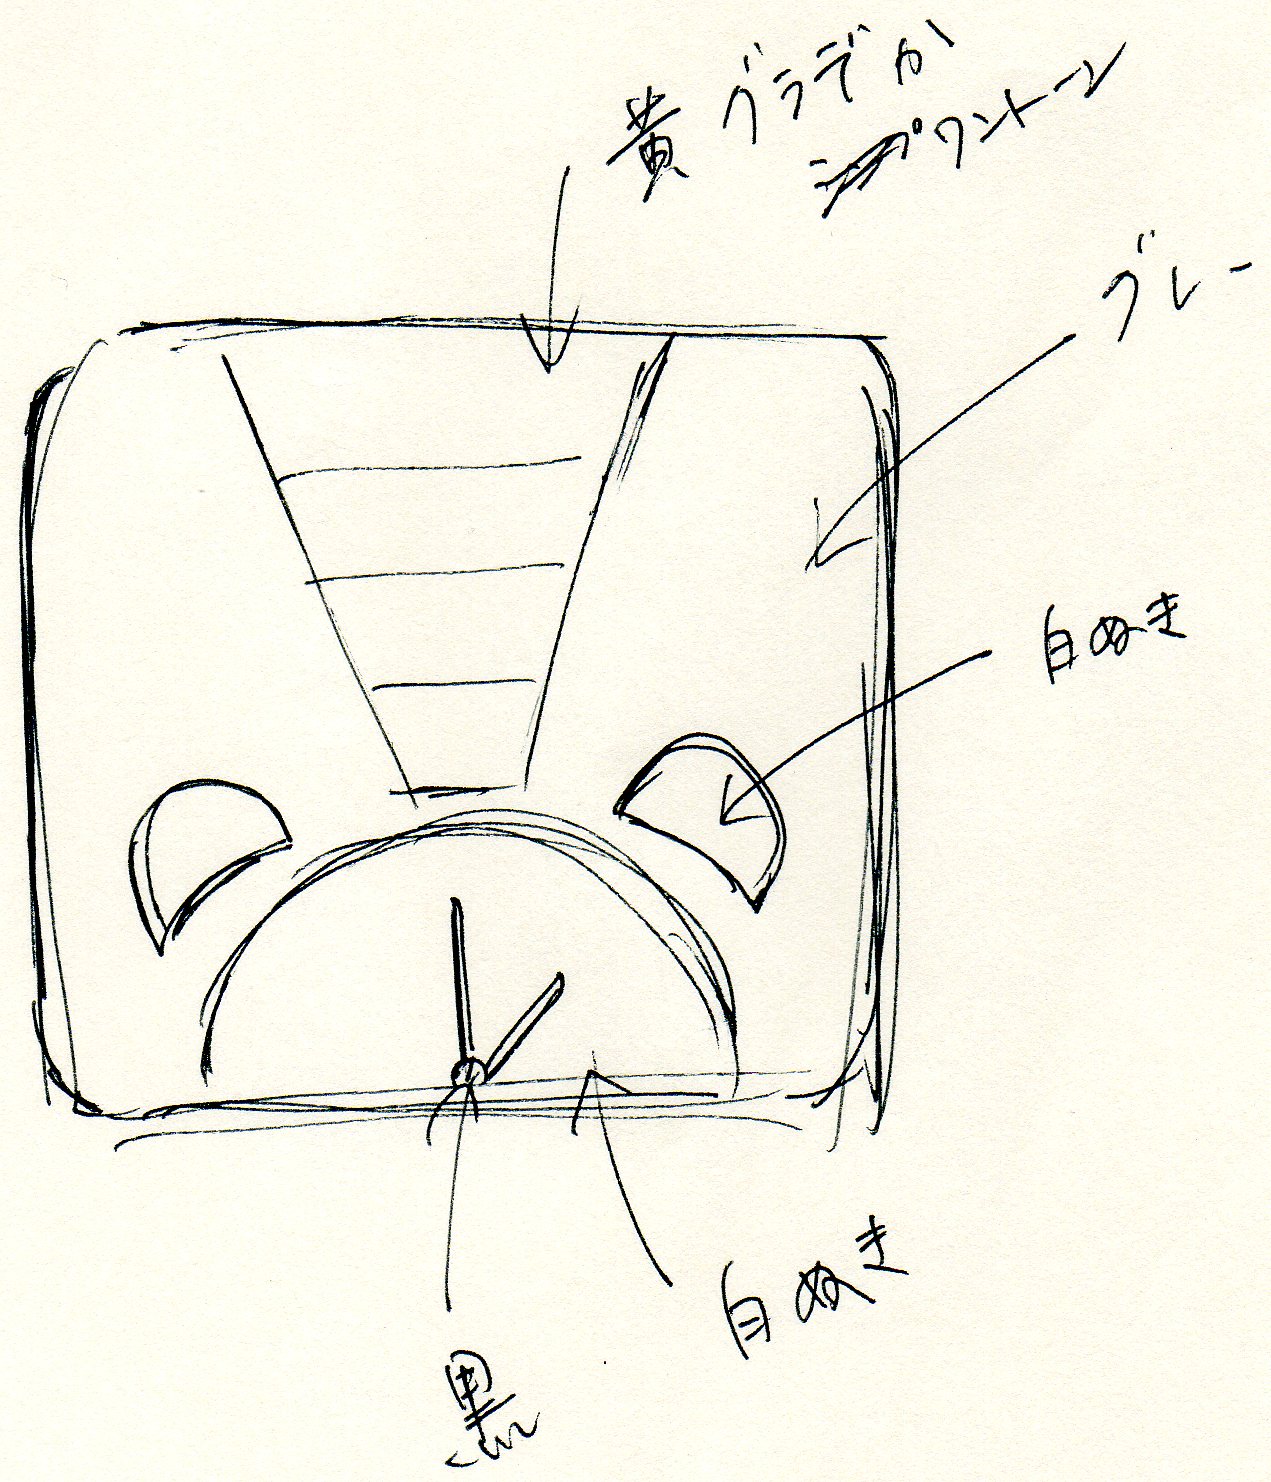 黄 グラデか
ワントーン
グレー
白ぬき
白ぬき
黒